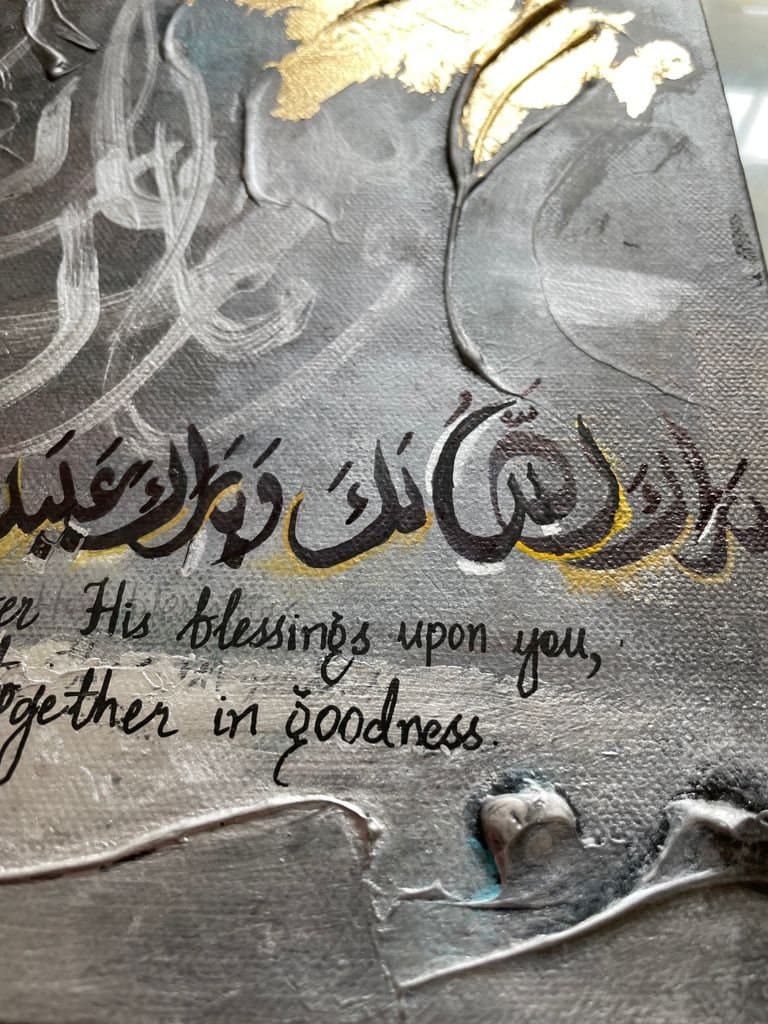 بارك اللّٰه لَكَ وَبَارَكَ عَلَيـ
er His blessings upon you,
together in goodness.